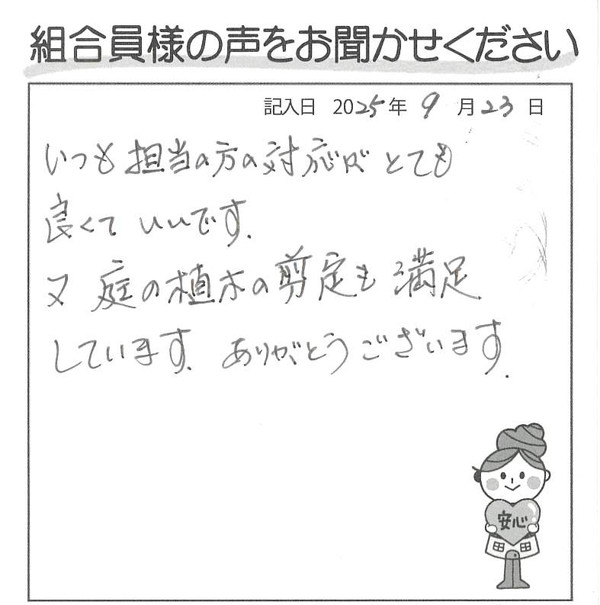 組合員様の声をお聞かせください
記入日 2025年 9月23日
いつも担当の方の対応がとても
良くていいです.
又庭の植木の剪定も満足
しています. ありがとうございます.
安心